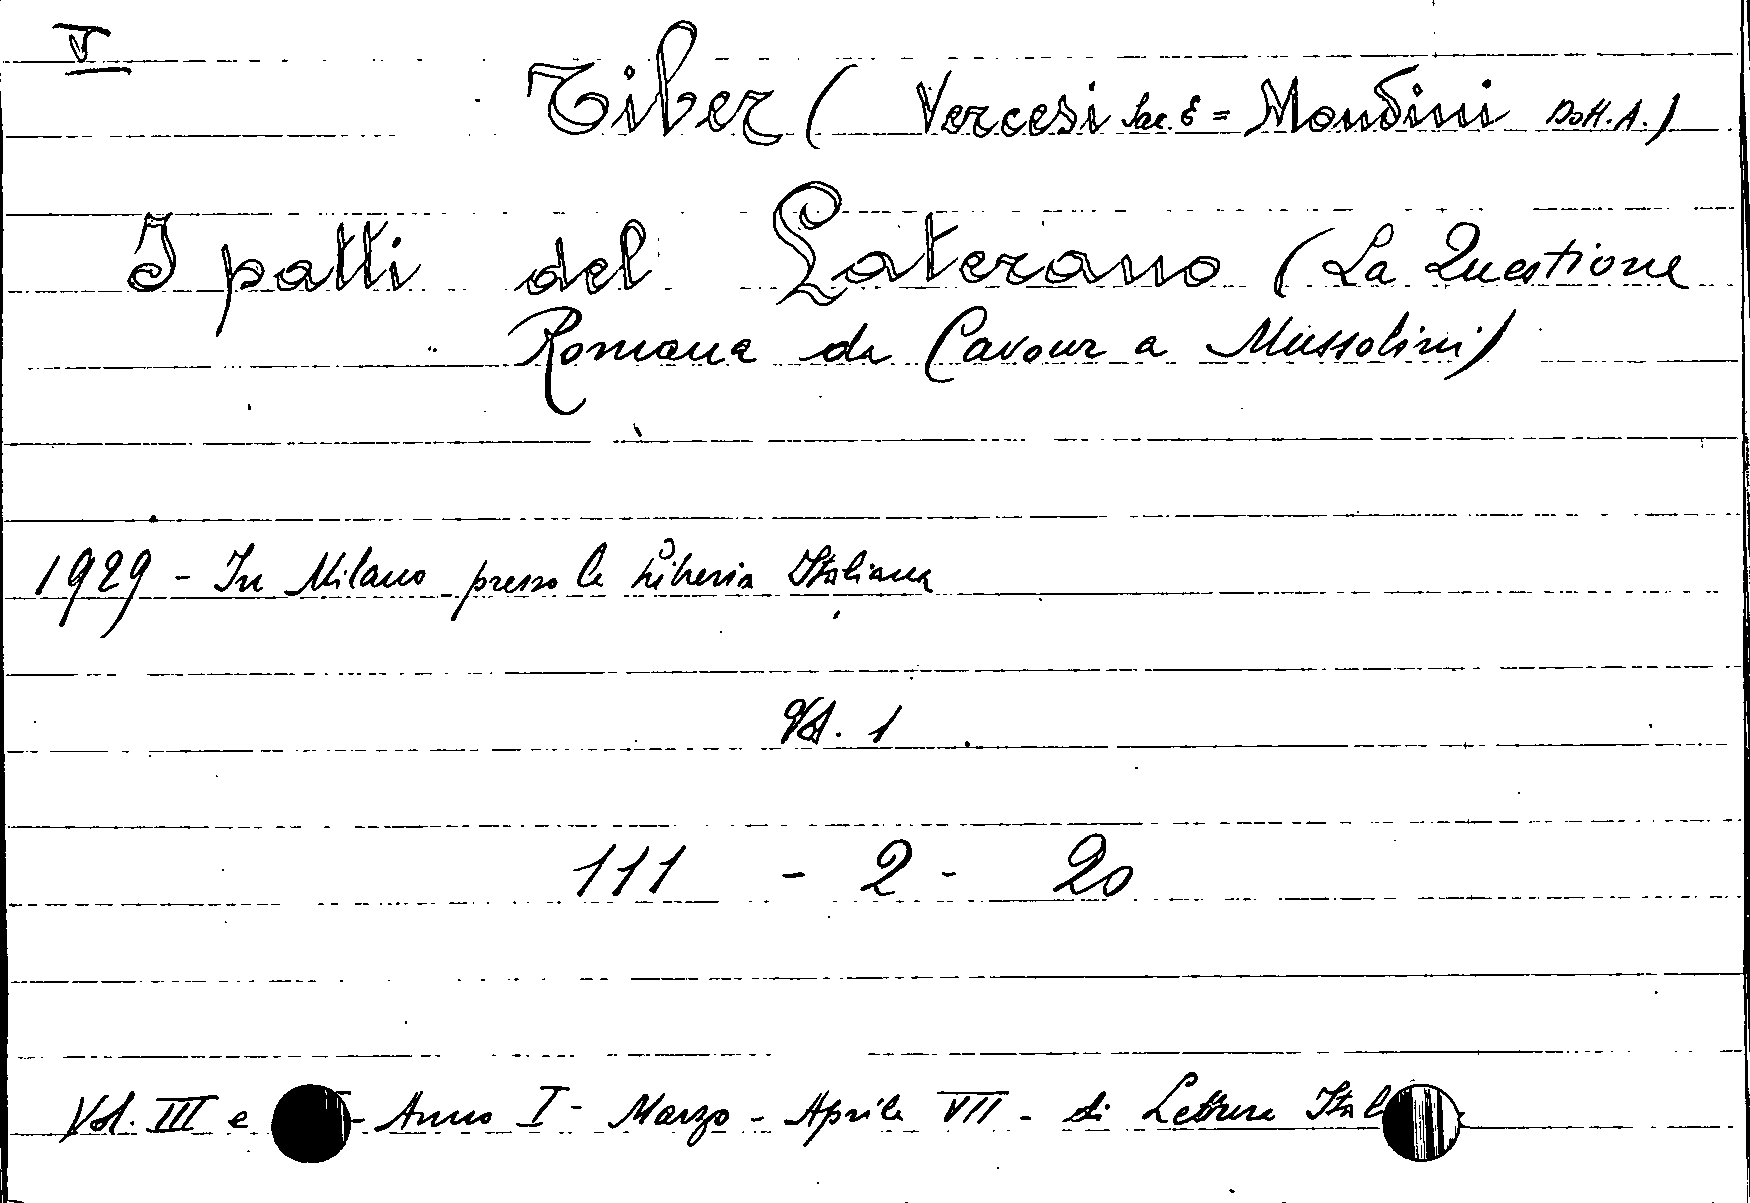 V
Tiber ( Vercesi Sac. E = Mondini Dott. A. )
I patti del Laterano ( La Questione
Romana da Cavour a Mussolini )
1929 - In Milano presso la Libreria Italiana
Vol. 1
111 - 2 - 20
Vol. III e - Anno I - Marzo - Aprile VII - di Lettura